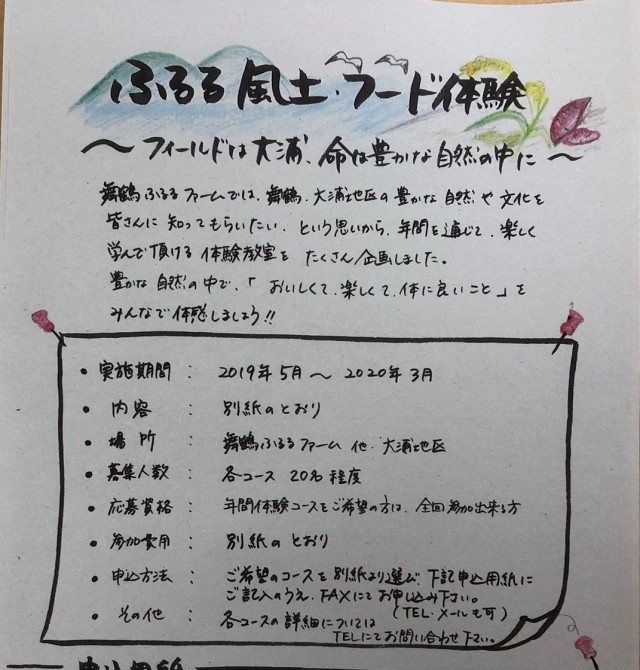 ふるる風土・フード体験
～フィールドは大浦、命は豊かな自然の中に～
舞鶴ふるるファームでは、舞鶴、大浦地区の豊かな自然や文化を
皆さんに知ってもらいたい、という思いから、年間を通じて、楽しく
学んで頂ける体験教室をたくさん企画しました。
豊かな自然の中で、「おいしくて、楽しくて、体に良いこと」を
みんなで体感しましょう!!
・実施期間 : 2019年5月～2020年3月
・内容 : 別紙のとおり
・場所 : 舞鶴ふるるファーム 他、大浦地区
・募集人数 : 各コース 20名程度
・応募資格 : 年間体験コースをご希望の方は、全回参加出来る方
・参加費用 : 別紙のとおり
・申込方法 : ご希望のコースを別紙より選び、下記申込用紙に
ご記入のうえ、FAXにてお申し込み下さい。
(TEL・メールも可)
・その他 : 各コースの詳細については
TELにてお問い合わせ下さい。
申込用紙